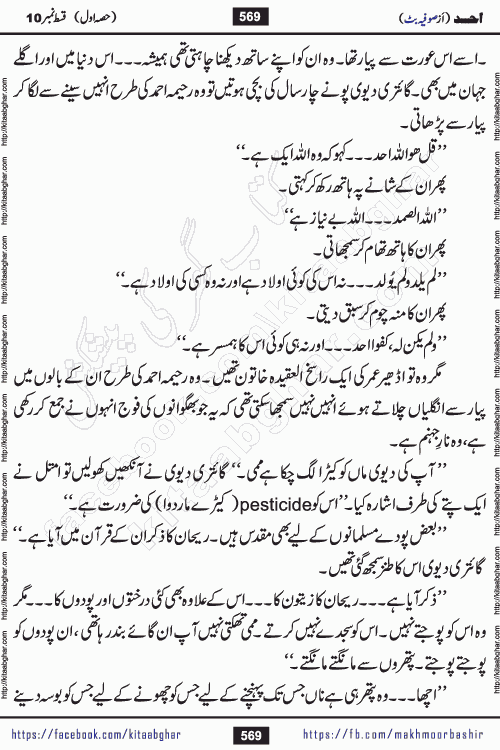 احد (از صوفیہ بٹ)
569
(حصہ اول) قسط نمبر 10
۔اسے اس عورت سے پیار تھا۔ وہ ان کو اپنے ساتھ دیکھنا چاہتی تھی ہمیشہ۔۔۔ اس دنیا میں اور اگلے
جہان میں بھی۔ گائتری دیوی پونے چار سال کی بچی ہوتیں تو وہ رحیمہ احمد کی طرح انہیں سینے سے لگا کر
پیار سے پڑھاتی۔
’’قل ھو اللہ احد۔۔۔ کہو کہ وہ اللہ ایک ہے۔‘‘
پھر ان کے شانے پہ ہاتھ رکھ کر کہتی۔
’’اللہ الصمد۔۔۔ اللہ بے نیاز ہے‘‘
پھر ان کا ہاتھ تھام کر سمجھاتی۔
’’لم یلد ولم یُولد۔۔۔ نہ اس کی کوئی اولاد ہے اور نہ وہ کسی کی اولاد ہے۔‘‘
پھر ان کا منہ چوم کر سبق دیتی۔
’’ولم یکن لہ، کفوا احد۔۔۔ اور نہ ہی کوئی اس کا ہمسر ہے۔‘‘
مگر وہ تو ادھیڑ عمر کی ایک راسخ العقیدہ خاتون تھیں۔ وہ رحیمہ احمد کی طرح ان کے بالوں میں
پیار سے انگلیاں چلاتے ہوئے انہیں نہیں سمجھا سکتی تھی کہ یہ جو بھگوانوں کی فوج انہوں نے جمع کر رکھی
ہے، وہ نارِ جہنم ہے۔
’’آپ کی دیوی ماں کو کیڑا لگ چکا ہے ممی۔‘‘ گائتری دیوی نے آنکھیں کھولیں تو امتل نے
ایک پتے کی طرف اشارہ کیا۔ ’’اس کو pesticide (کیڑے مار دوا) کی ضرورت ہے۔‘‘
’’بعض پودے مسلمانوں کے لیے بھی مقدس ہیں۔ ریحان کا ذکر ان کے قرآن میں آیا ہے۔‘‘
گائتری دیوی اس کا طنز سمجھ گئی تھیں۔
’’ذکر آیا ہے۔۔۔ ریحان کا زیتون کا۔۔۔ اس کے علاوہ بھی کئی درختوں اور پودوں کا۔۔۔ مگر
وہ اس کو پوجتے نہیں۔ اس کو سجدے نہیں کرتے۔ ممی تھکتی نہیں آپ ان گائے بندر ہاتھی، ان پودوں کو
پوجتے پوجتے۔ پتھروں سے مانگتے مانگتے۔‘‘
’’اچھا۔۔۔ وہ پتھر ہی ہے ناں جس تک پہنچنے کے لیے جس کو چھونے کے لیے جس کو بوسہ دینے
https://facebook.com/kitaabghar
569
https://fb.com/makhmoorbashir
http://kitaabghar.com
کتاب گھر کی پیشکش
facebook.com/kitaabghar
kitaabghar.com